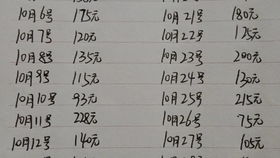 10月6号 175元 10月21号 180元
10月7号 120元 10月22号 125元
10月8号 135元 10月23号 200元
10月9号 115元 10月24号 130元
10月10号 93元 10月25号 215元
10月11号 228元 10月26号 75元
10月12号 140元 10月27号 105元